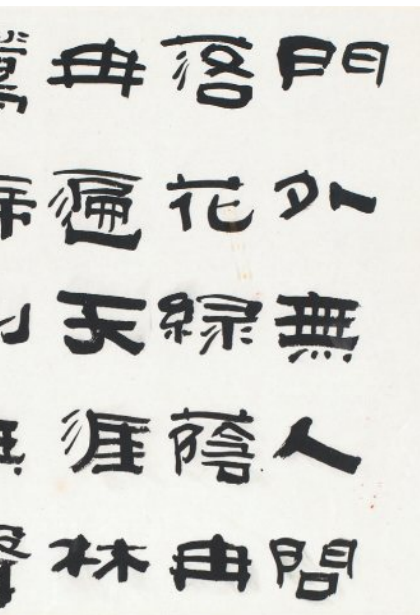 門外無人問
落花緑蔭冉
冉遍天涯林